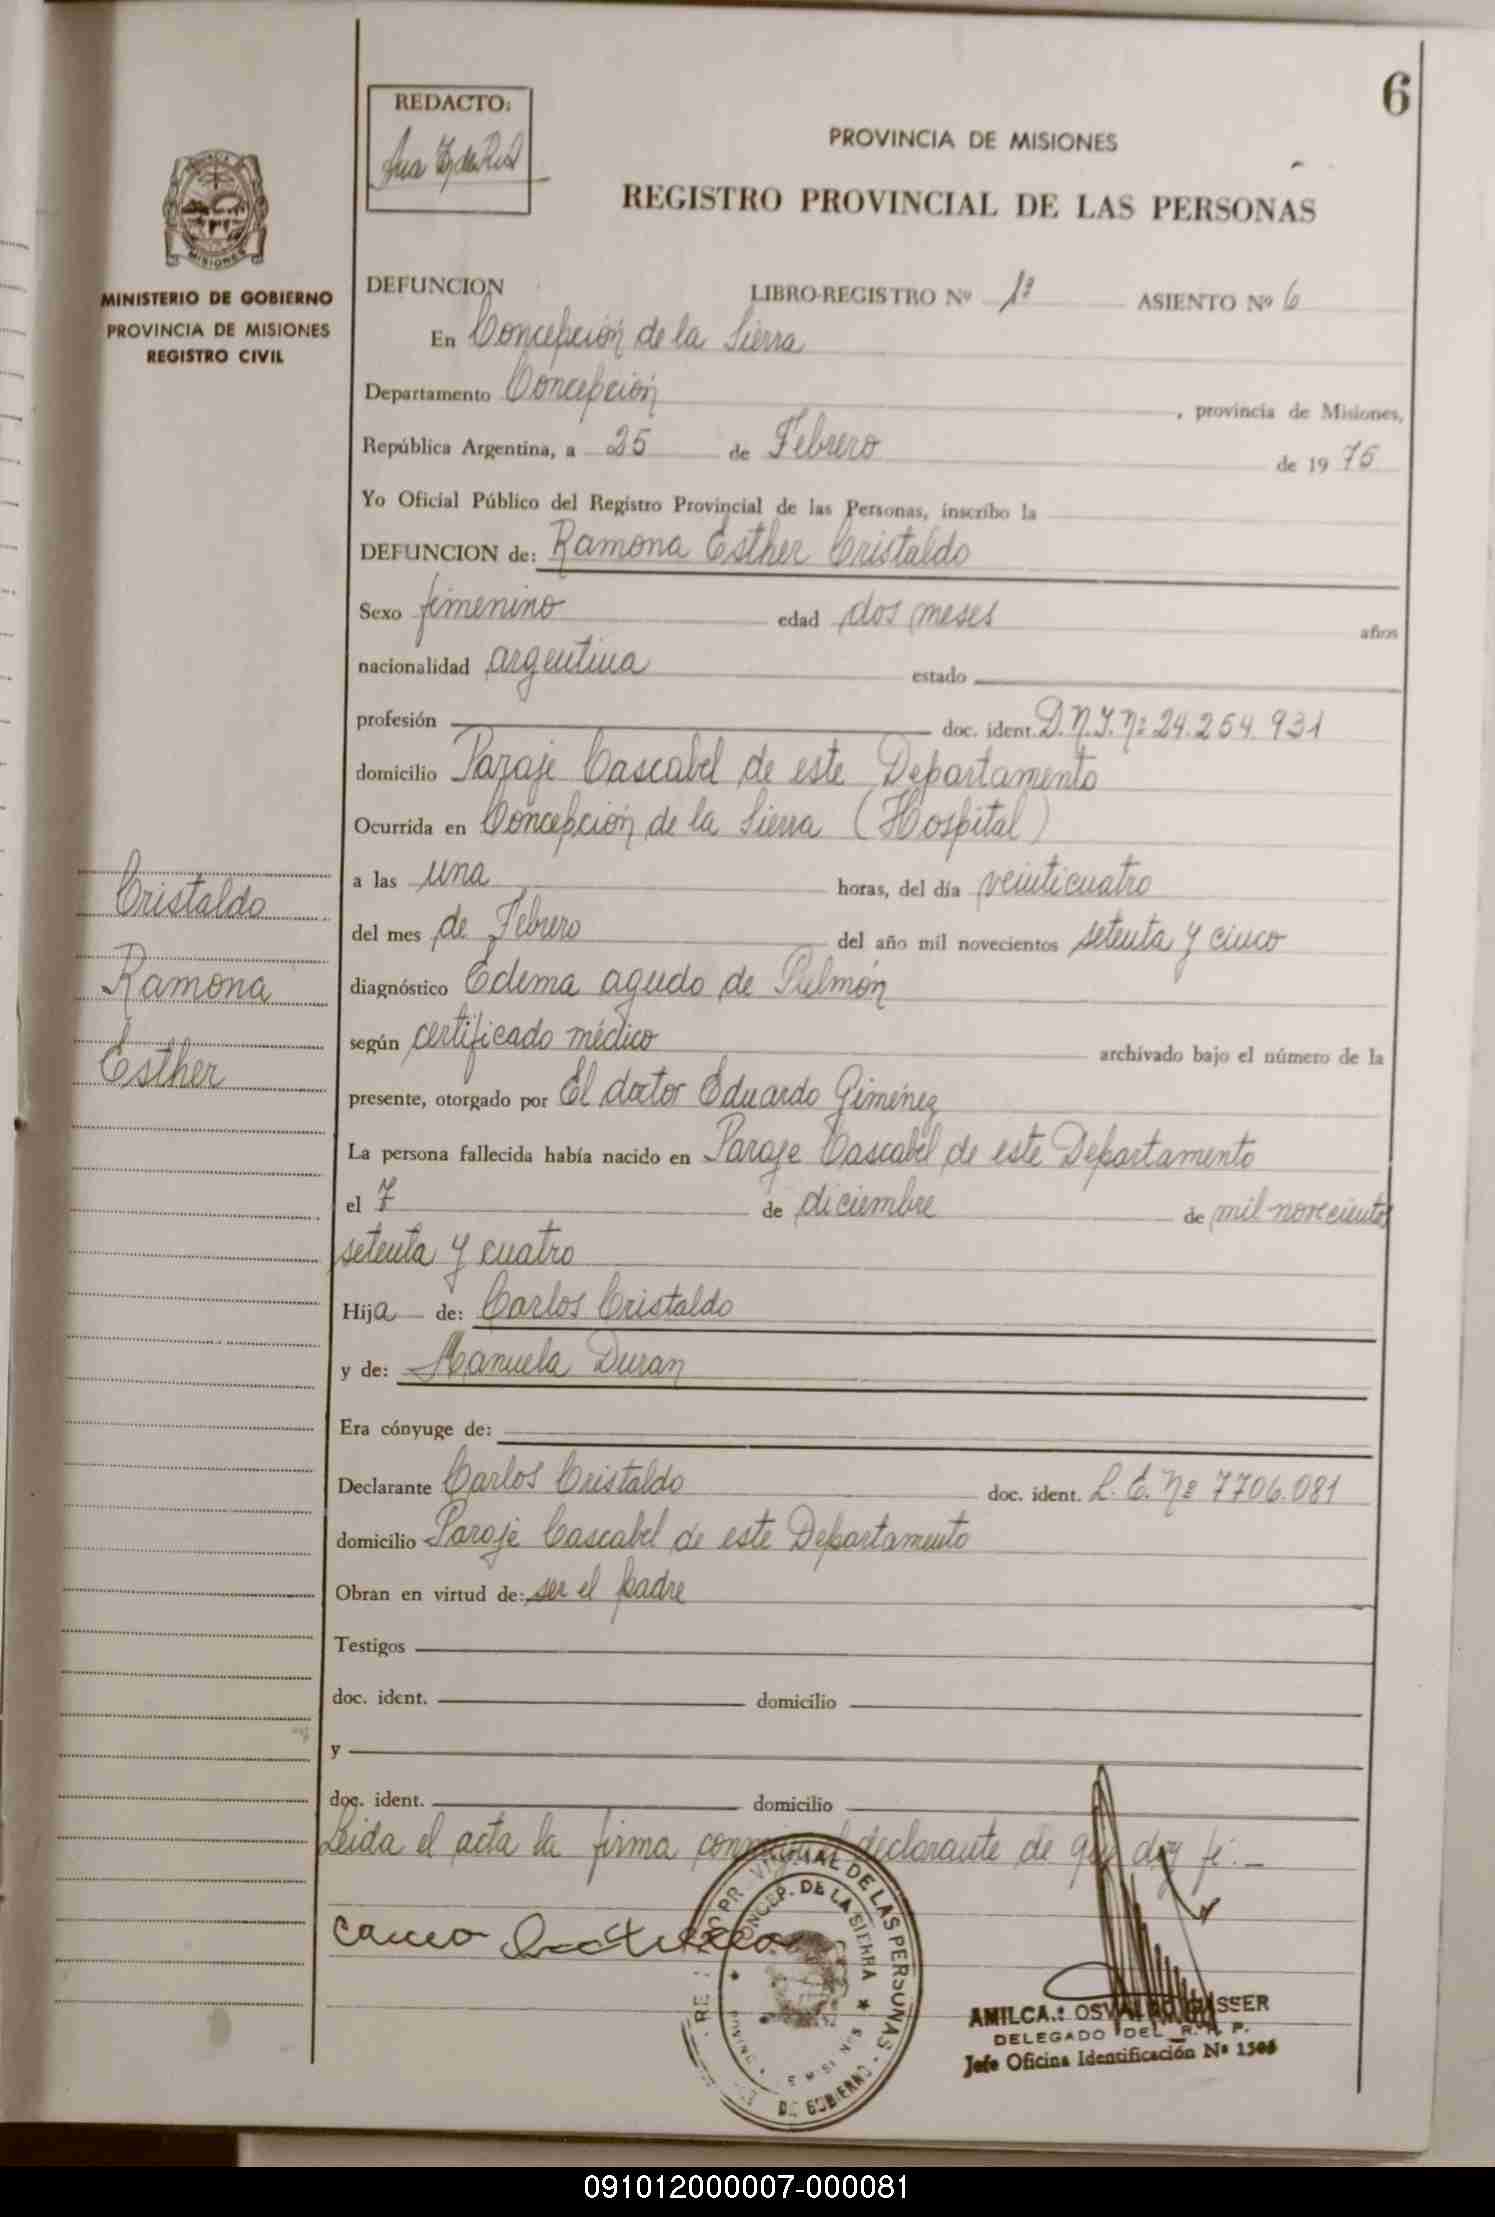 6
REDACTO:
PROVINCIA DE MISIONES
REGISTRO PROVINCIAL DE LAS PERSONAS
MISIONES
MINISTERIO DE GOBIERNO
PROVINCIA DE MISIONES
REGISTRO CIVIL
DEFUNCION LIBRO-REGISTRO Nº 1º ASIENTO Nº 6
En Concepción de la Sierra
Departamento Concepción, provincia de Misiones,
República Argentina, a 25 de Febrero de 1975
Yo Oficial Público del Registro Provincial de las Personas, inscribo la
DEFUNCION de: Ramona Esther Cristaldo
Sexo femenino edad dos meses años
nacionalidad argentina estado
profesión doc. ident. D.N.I. Nº 24.254.931
domicilio Paraje Cascabel de este Departamento
Ocurrida en Concepción de la Sierra (Hospital)
a las una horas, del día veinticuatro
del mes de Febrero del año mil novecientos setenta y cinco
diagnóstico Edema agudo de Pulmón
según certificado médico archivado bajo el número de la
presente, otorgado por El doctor Eduardo Giménez
La persona fallecida había nacido en Paraje Cascabel de este Departamento
el 7 de diciembre de mil novecientos
setenta y cuatro
Hija de: Carlos Cristaldo
y de: Manuela Duran
Era cónyuge de:
Declarante Carlos Cristaldo doc. ident. L.E. Nº 7706.081
domicilio Paraje Cascabel de este Departamento
Obran en virtud de: ser el padre
Testigos
doc. ident. domicilio
y
doc. ident. domicilio
Leida el acta la firma conmigo el declarante de que doy fe:
Cristaldo
Ramona
Esther
CONCEP. DE LA SIERRA
DE LAS PERSONAS
DE GOBIERNO
AMILCAR OSVALDO GASSER
DELEGADO DEL R. P. P.
Jefe Oficina Identificación Nº
091012000007-000081